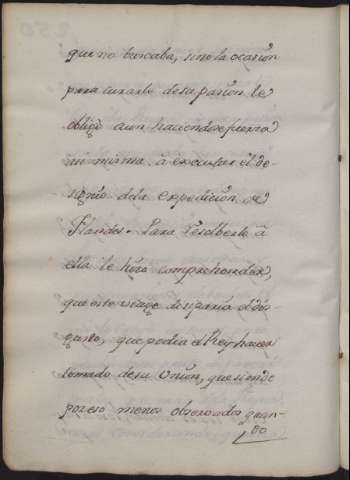 que no buscaba, sino la ocasion
para curarle de su pasion le
obligò aun haciendose fuerza
asi misma à executar el de-
signio dela expedicion de
Flandes. Para resolberle à
ella le hizo comprehender,
que este viage disiparia el dis-
gusto, que podia el Rey haver
tomado de su Union, que siendo
por eso menos observados quan-
do